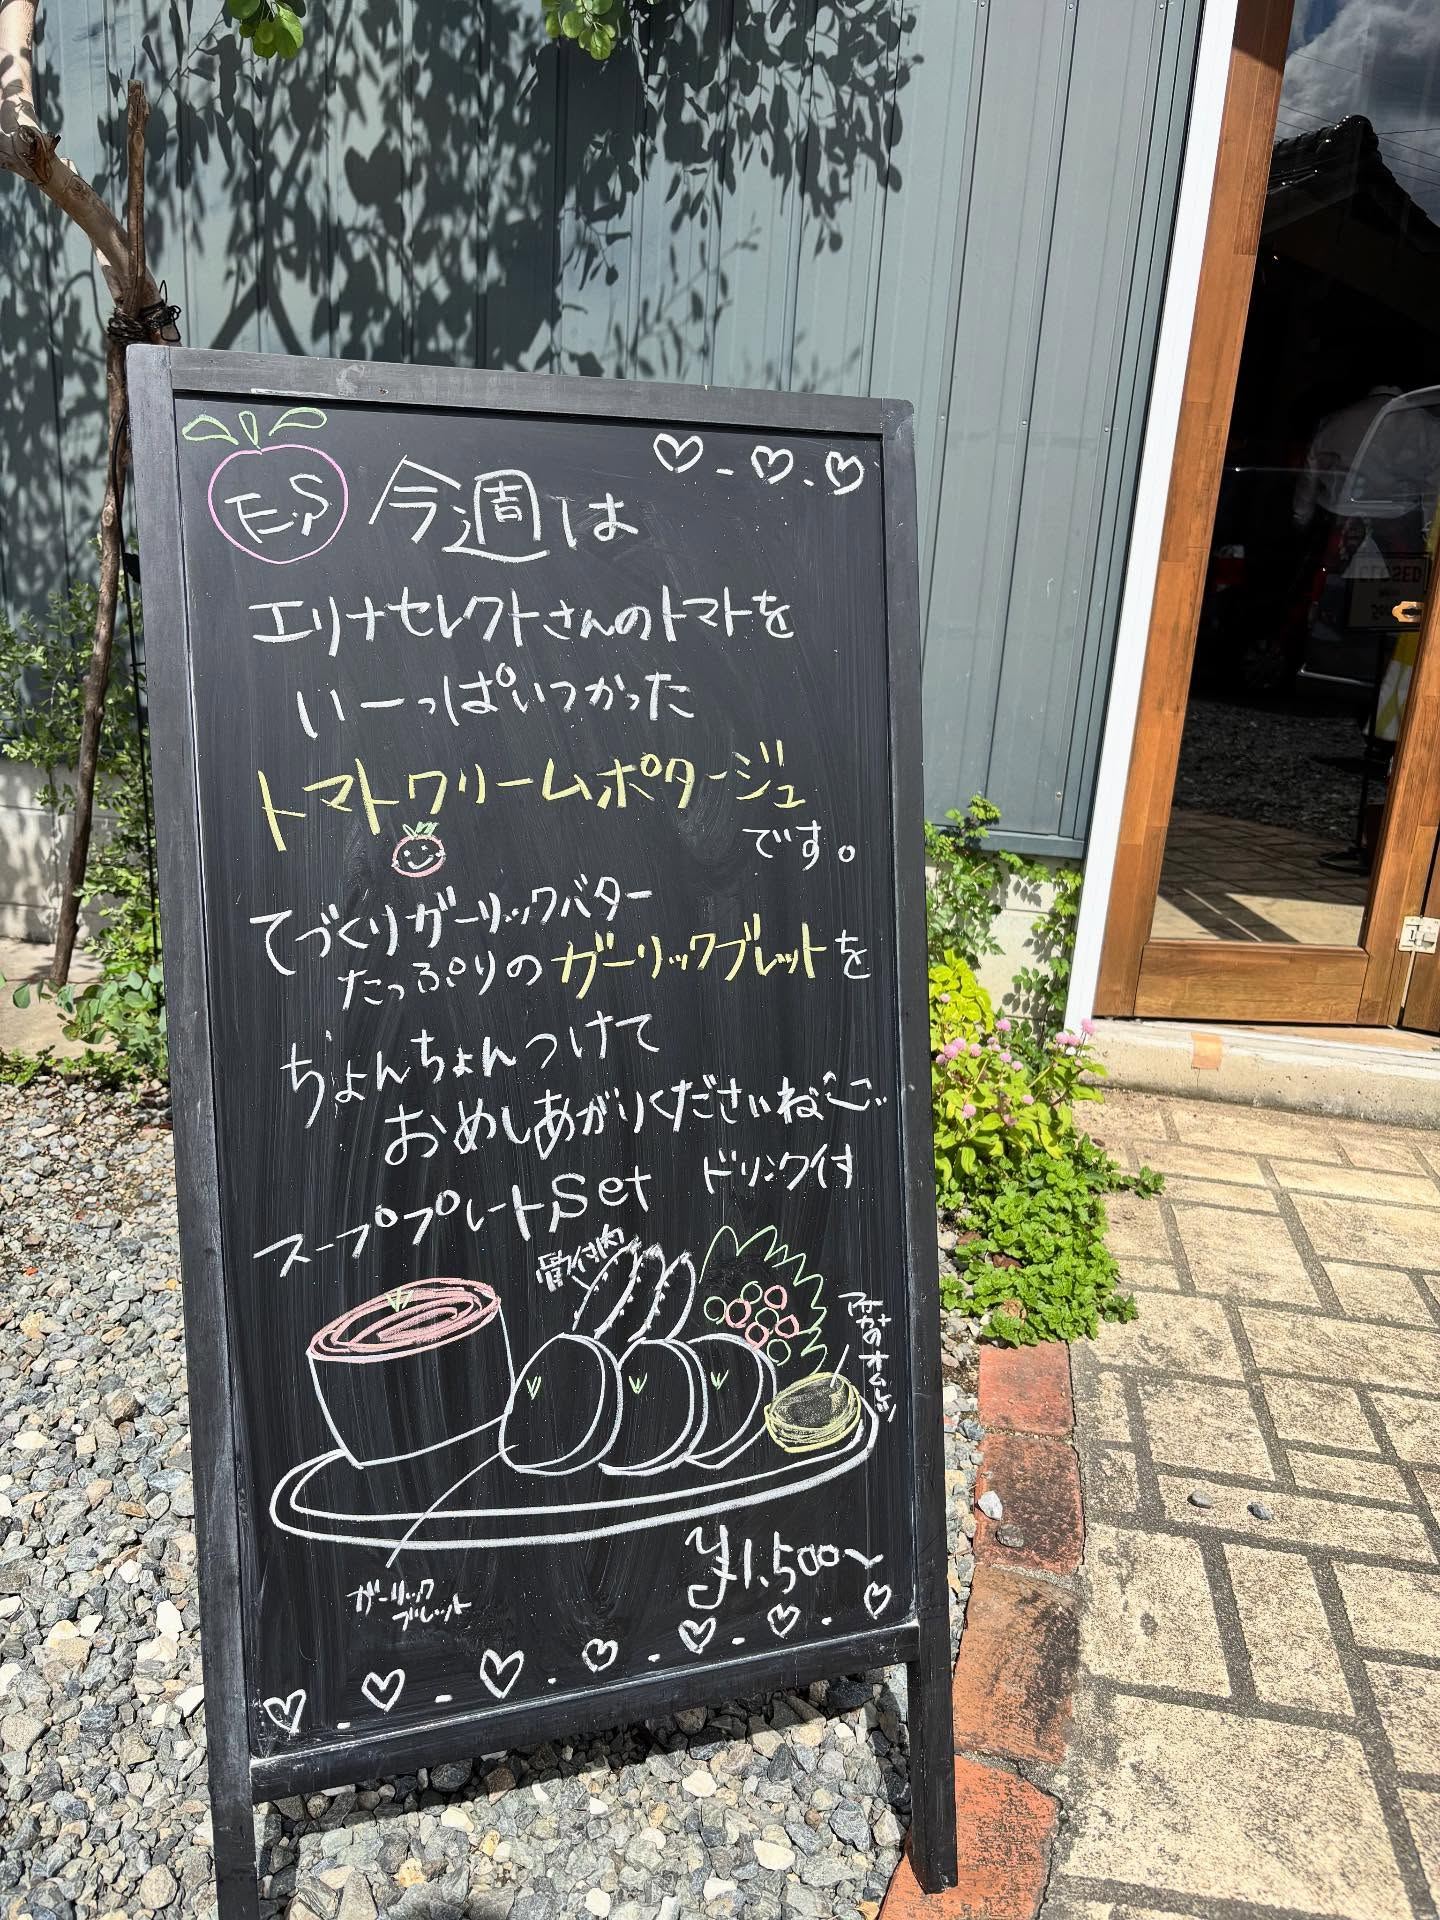 E.S 今週は
エリナセレクトさんのトマトを
いーっぱいつかった
トマトクリームポタージュ
です。
てづくりガーリックバター
たっぷりのガーリックブレットを
ちょんちょんつけて
おめしあがりくださいね
スーププレートSet ドリンク付
骨付肉
ガーリック
ブレット
¥1,500～
CLOSED